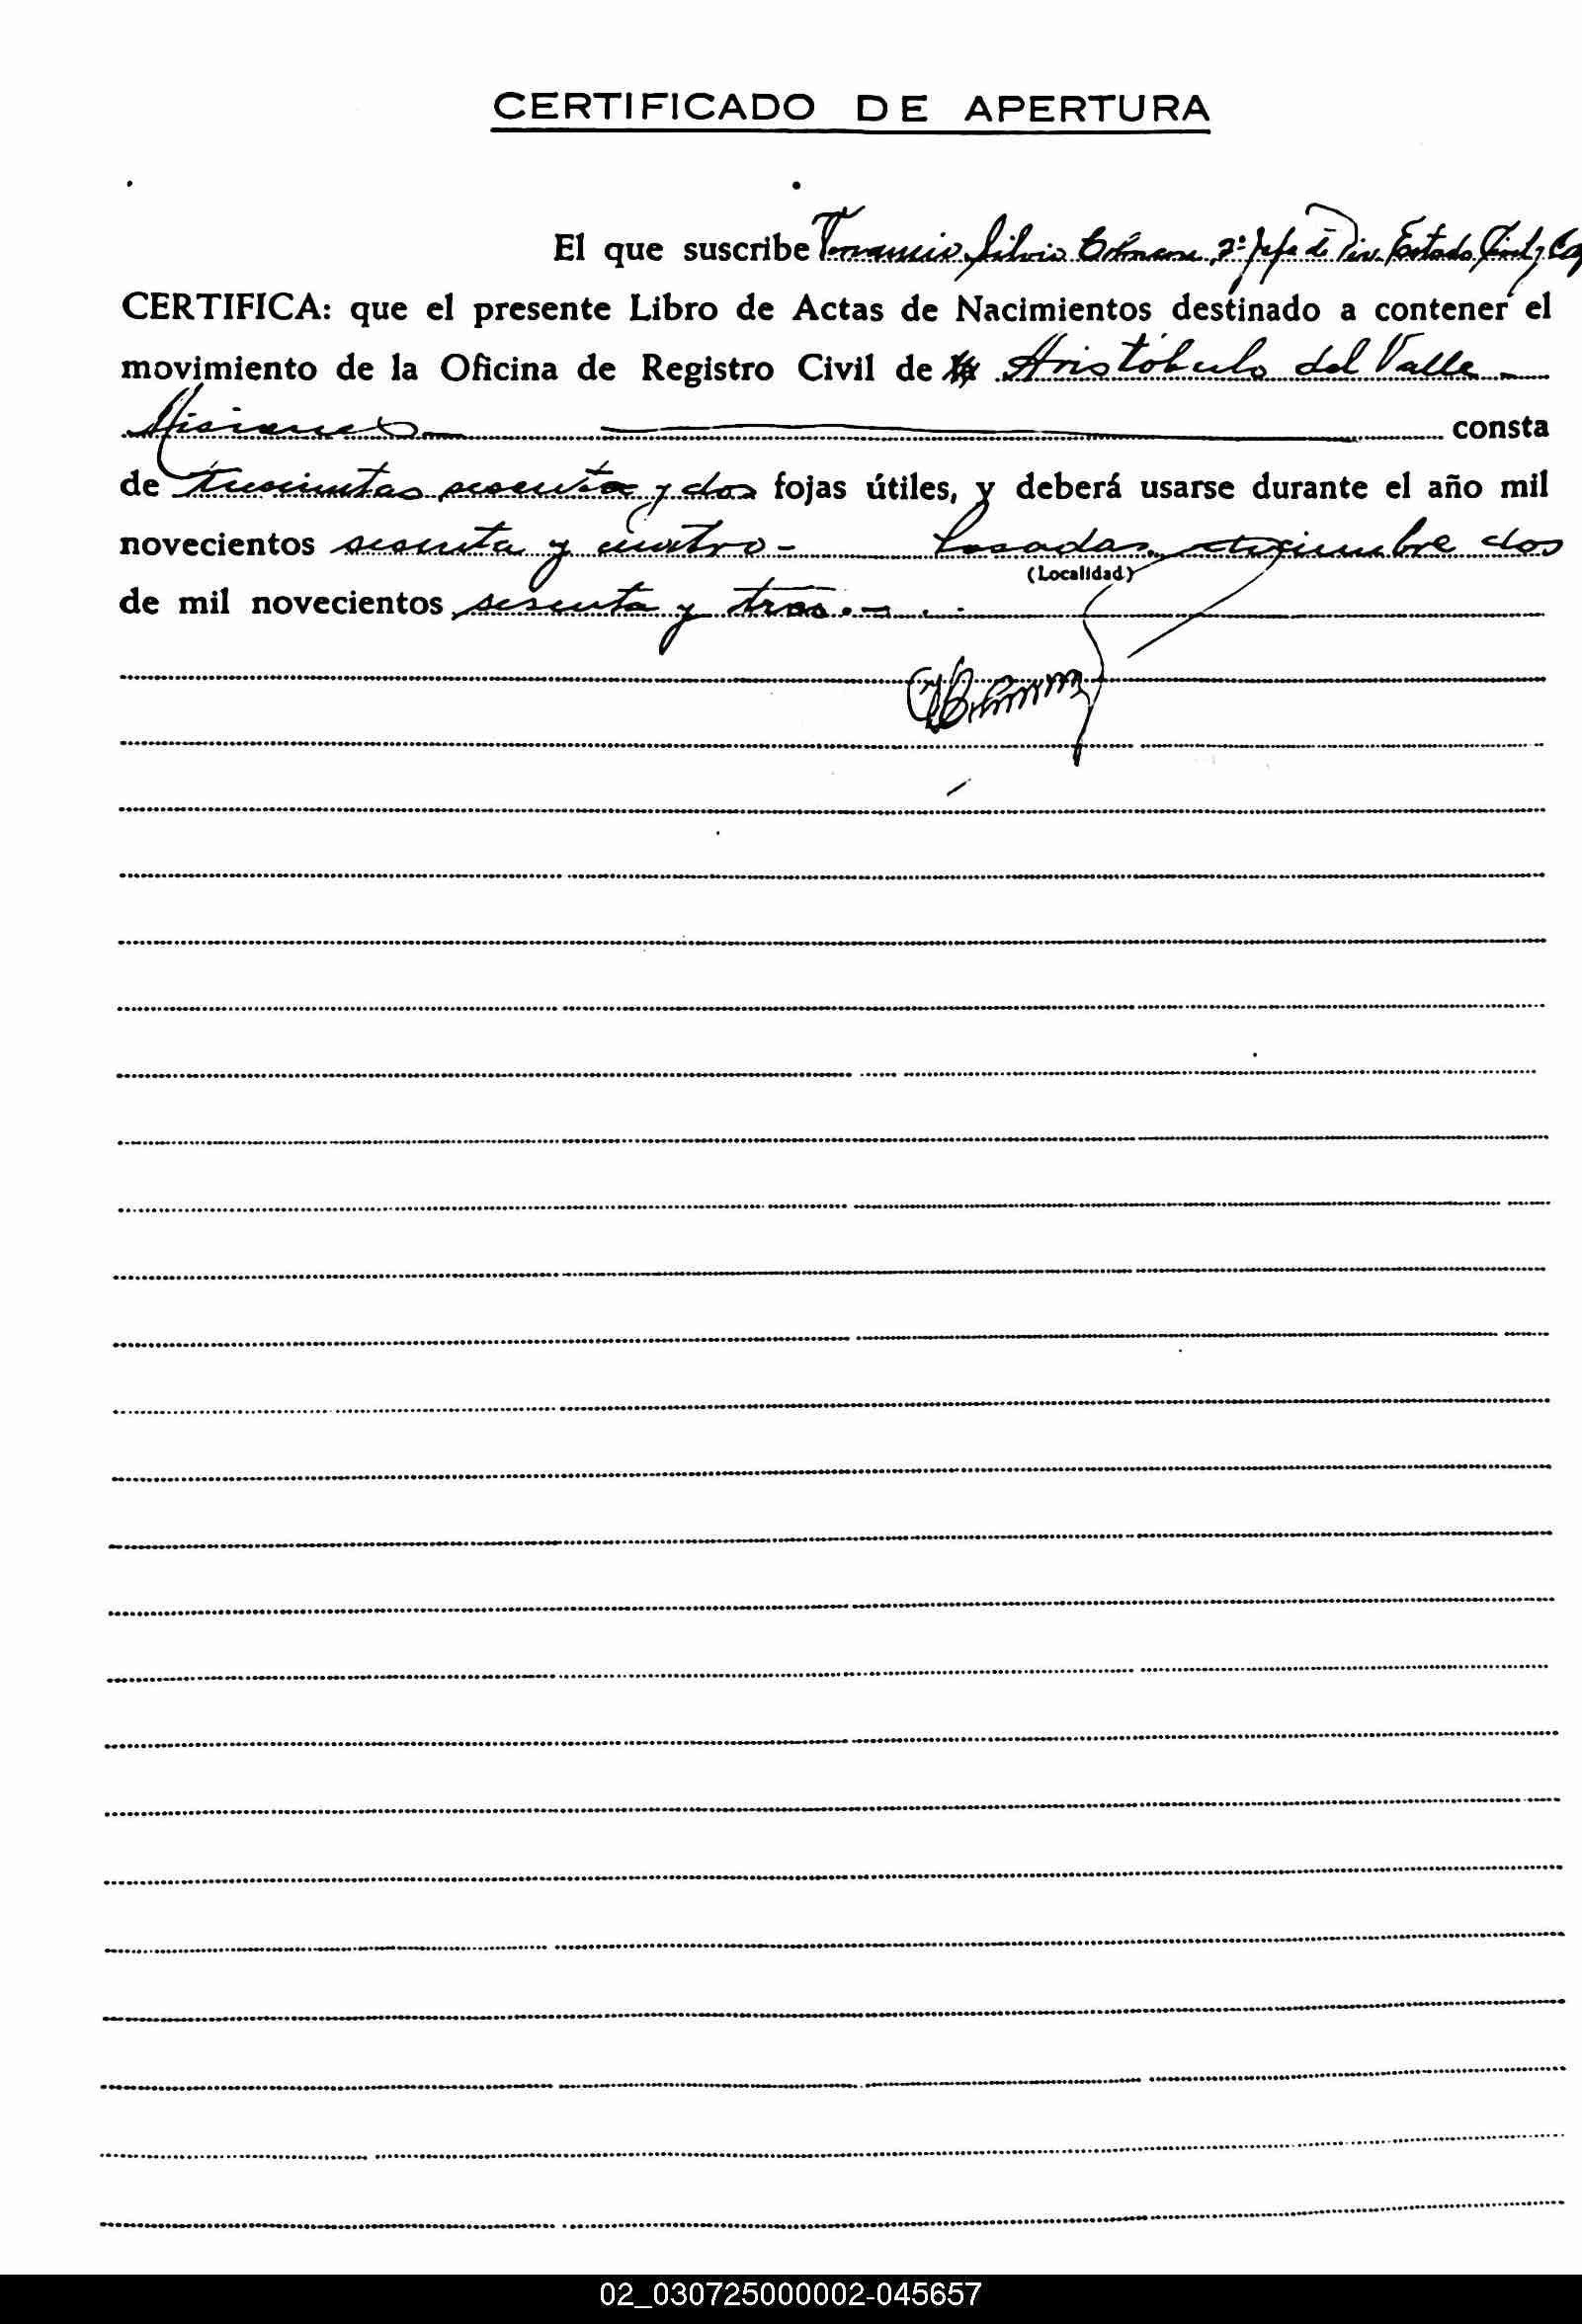 CERTIFICADO DE APERTURA
El que suscribe Silvio 2º Jefe de Div. Estado Civil y
CERTIFICA: que el presente Libro de Actas de Nacimientos destinado a contener el
movimiento de la Oficina de Registro Civil de Aristóbulo del Valle -
Misiones consta
de trescientas sesenta y dos fojas útiles, y deberá usarse durante el año mil
novecientos sesenta y cuatro - Posadas, diciembre dos
(Localidad)
de mil novecientos sesenta y tres. -
02_030725000002-045657